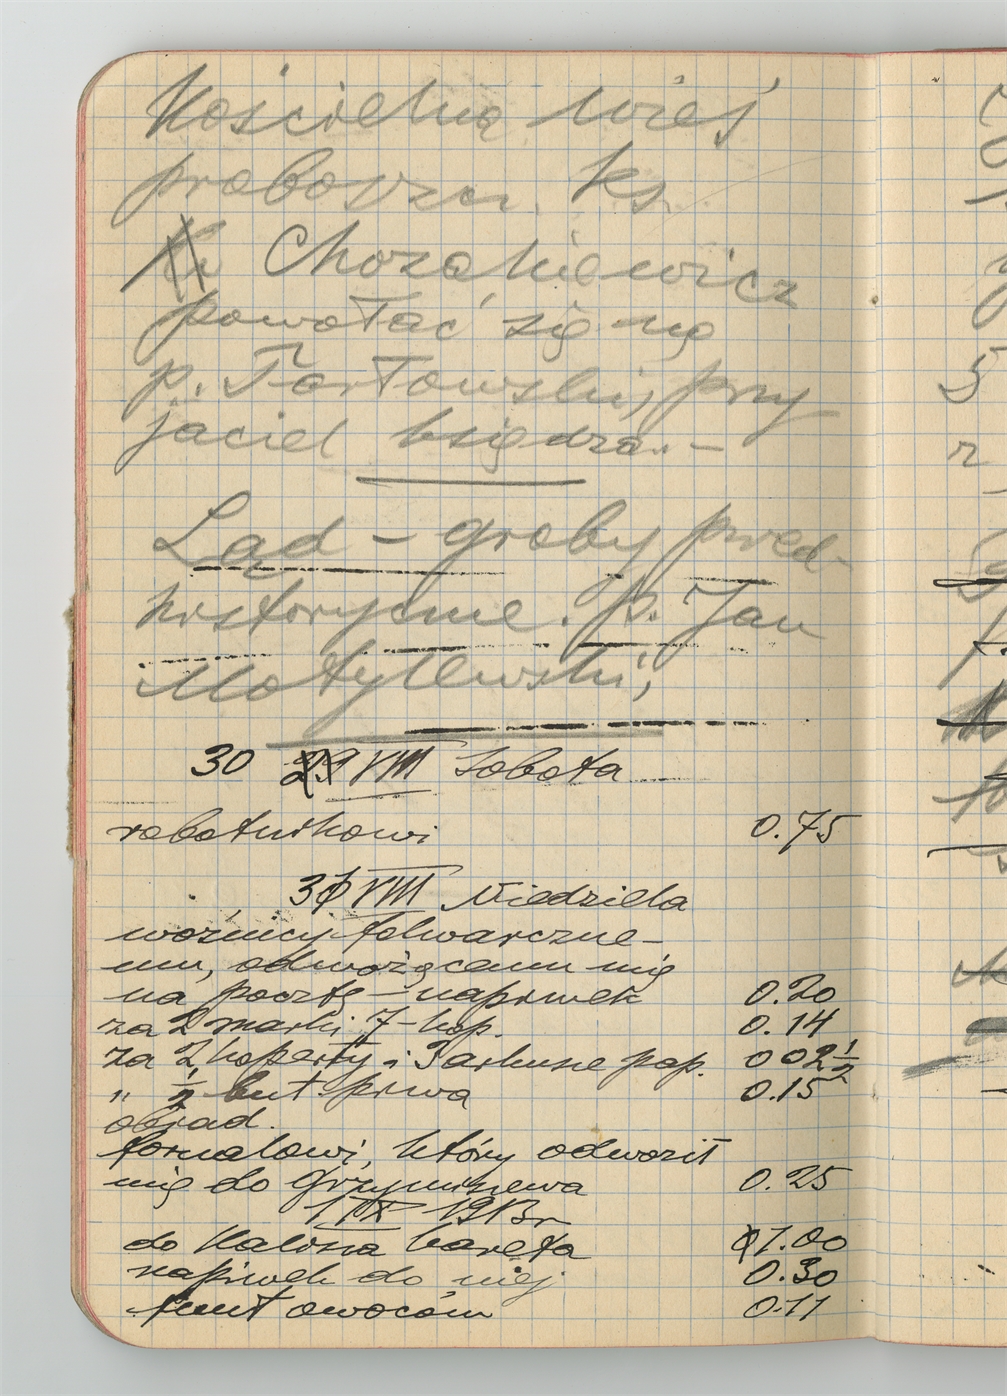 Kościelna Wieś
proboszcz. ks.
Chozakiewicz
powołać się na
p. Tortowski, przy
jaciel księdza. –
Ląd – groby pred-
historyczne. p. Jan
Motylewski,
30 29 VIII Sobota
robotnikowi 0.75
31 VIII Niedziela
woźnicy folwarczne-
mu, odwożącemu mię
na pocztę – napiwek 0.20
za 2 marki 7-kop. 0.14
za 2 koperty i 3 arkusze pap. 0 02 1/2
" 1/2 but piwa 0.15
objad.
fornalowi, który odwoził
mię do Grzymiszewa 0.25
1 IX 1913 r
do Kalisza kareta 1.00
napiwek do niej 0.30
funt owoców 0.11